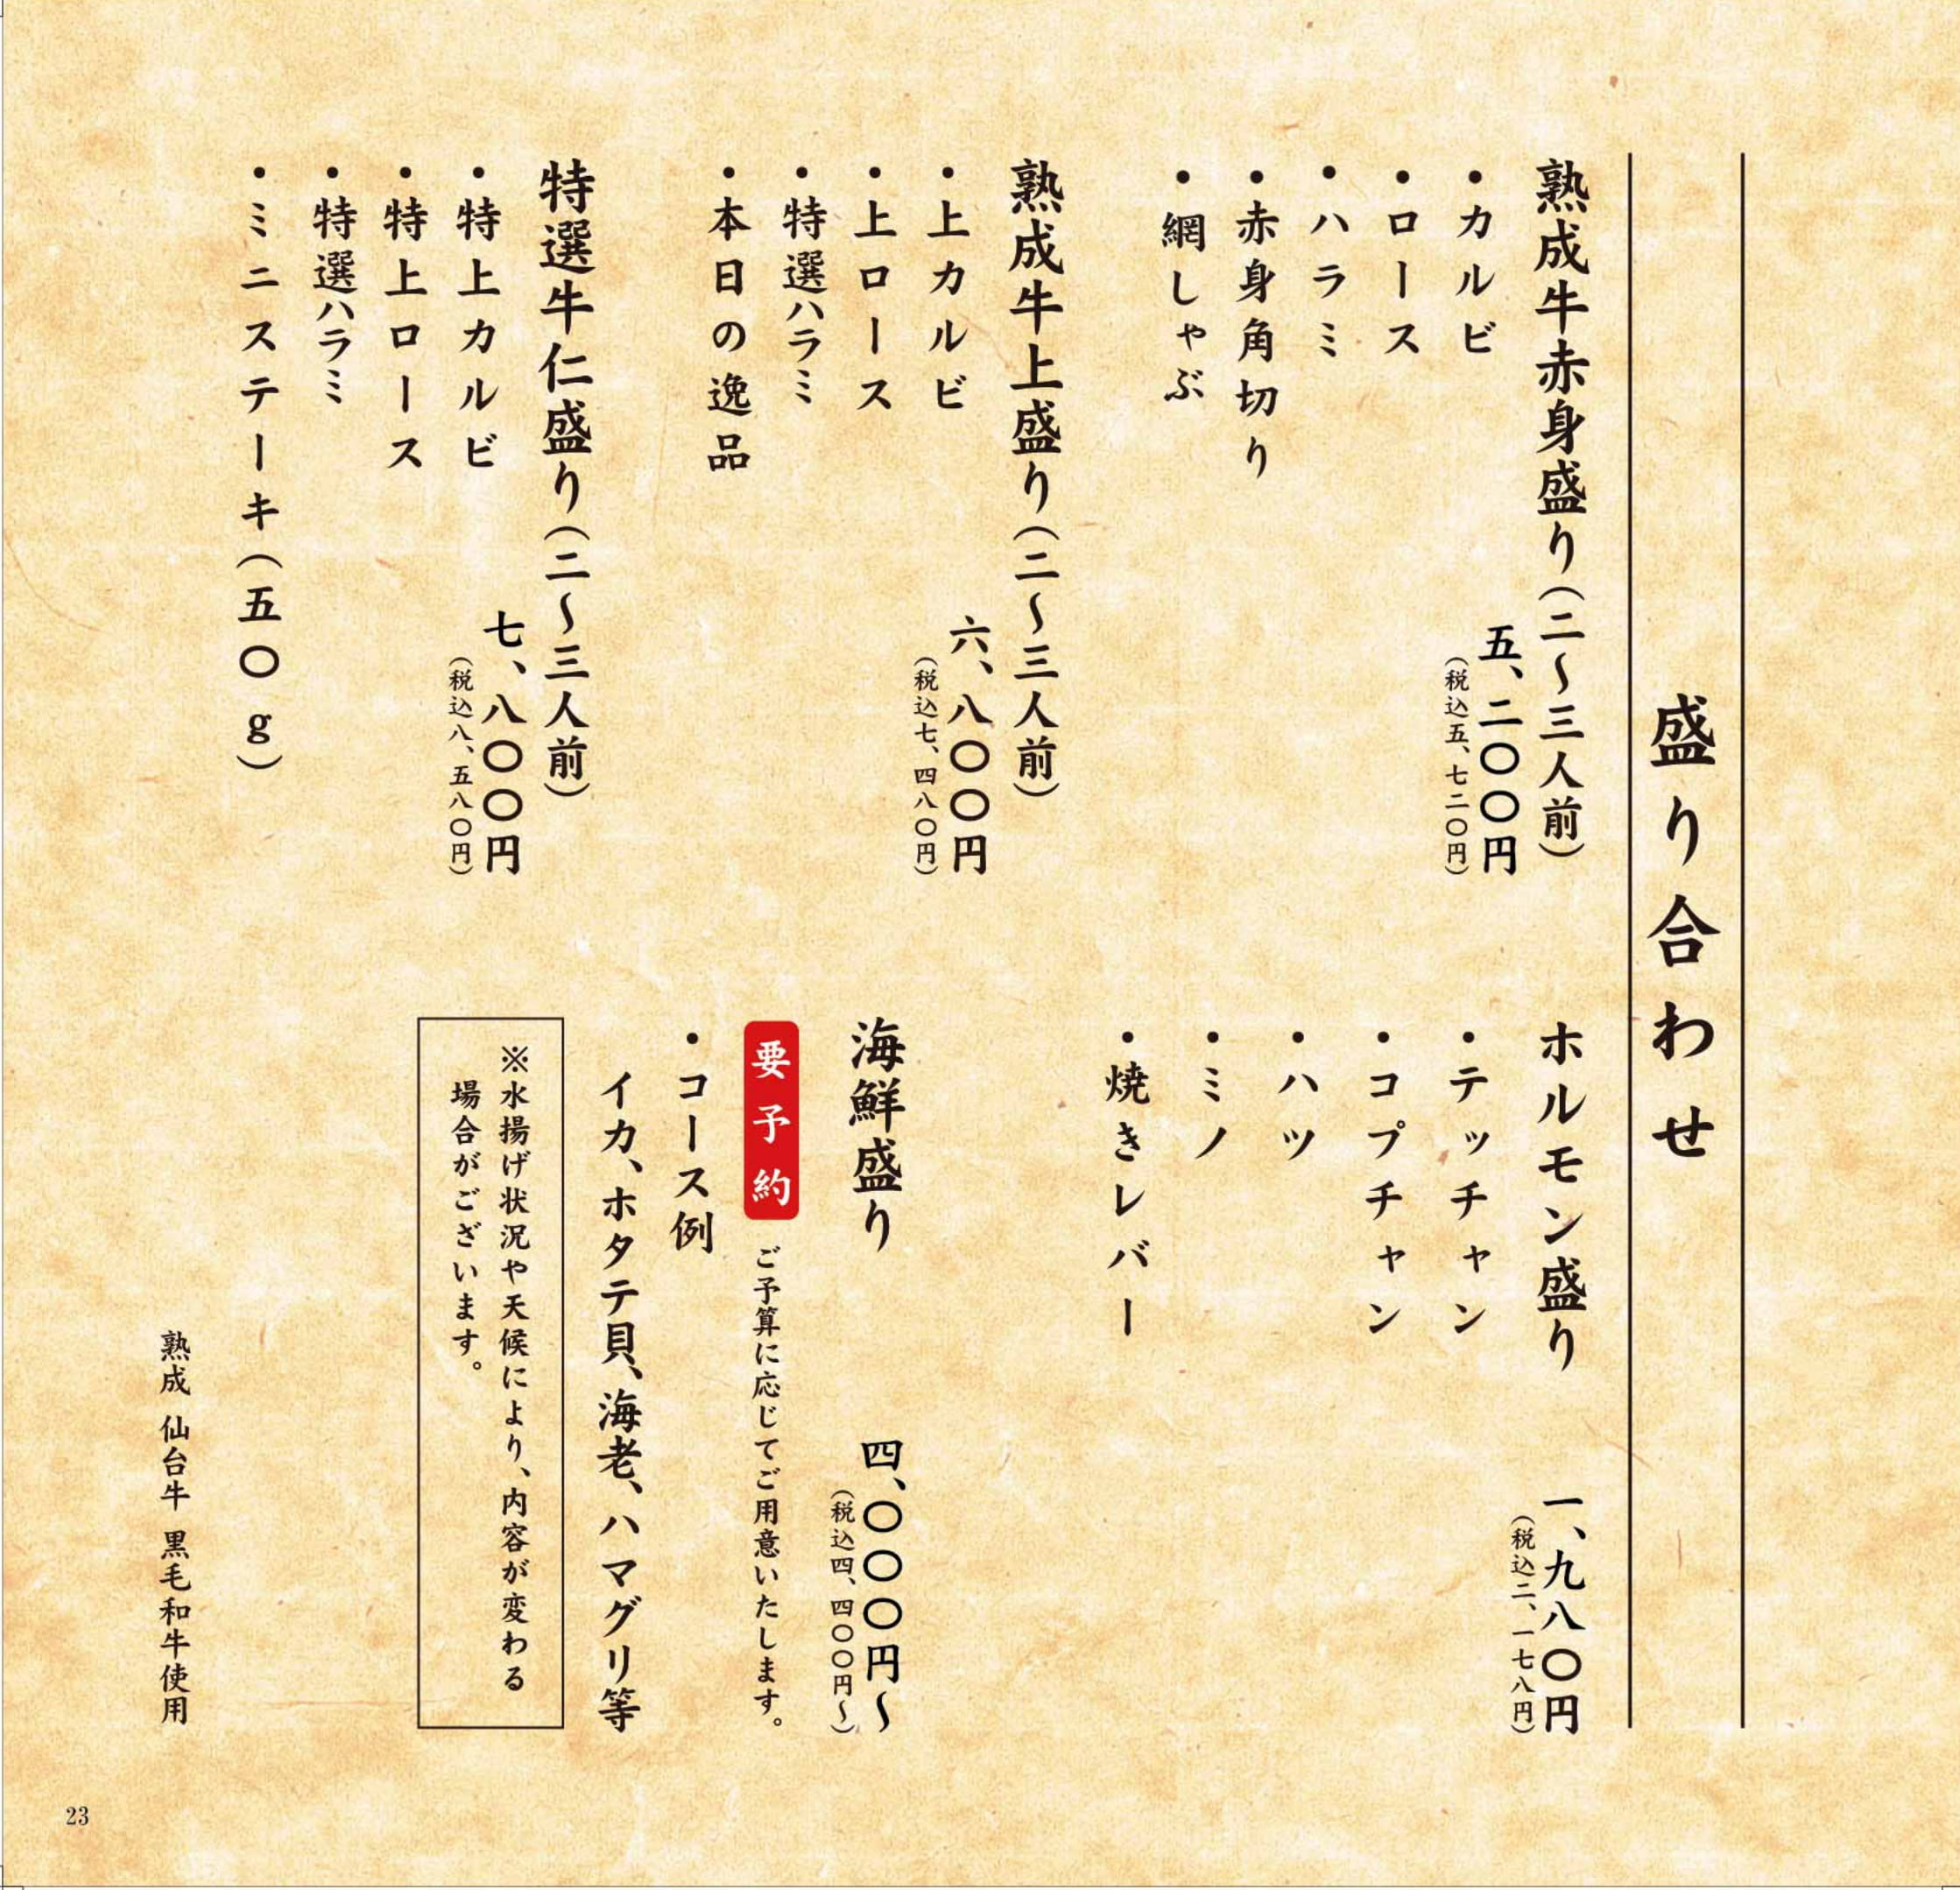 盛り合わせ
熟成牛赤身盛り(二〜三人前)
五、二〇〇円
(税込五、七二〇円)
・カルビ
・ロース
・ハラミ
・赤身角切り
・網しゃぶ
熟成牛上盛り(二〜三人前)
六、八〇〇円
(税込七、四八〇円)
・上カルビ
・上ロース
・特選ハラミ
・本日の逸品
特選牛仁盛り(二〜三人前)
七、八〇〇円
(税込八、五八〇円)
・特上カルビ
・特上ロース
・特選ハラミ
・ミニステーキ(五〇g)
ホルモン盛り
一、九八〇円
(税込二、一七八円)
・テッチャン
・コプチャン
・ハツ
・ミノ
・焼きレバー
海鮮盛り
四、〇〇〇円〜
(税込四、四〇〇円〜)
要予約 ご予算に応じてご用意いたします。
・コース例
イカ、ホタテ貝、海老、ハマグリ等
※水揚げ状況や天候により、内容が変わる
場合がございます。
熟成 仙台牛 黒毛和牛使用
23